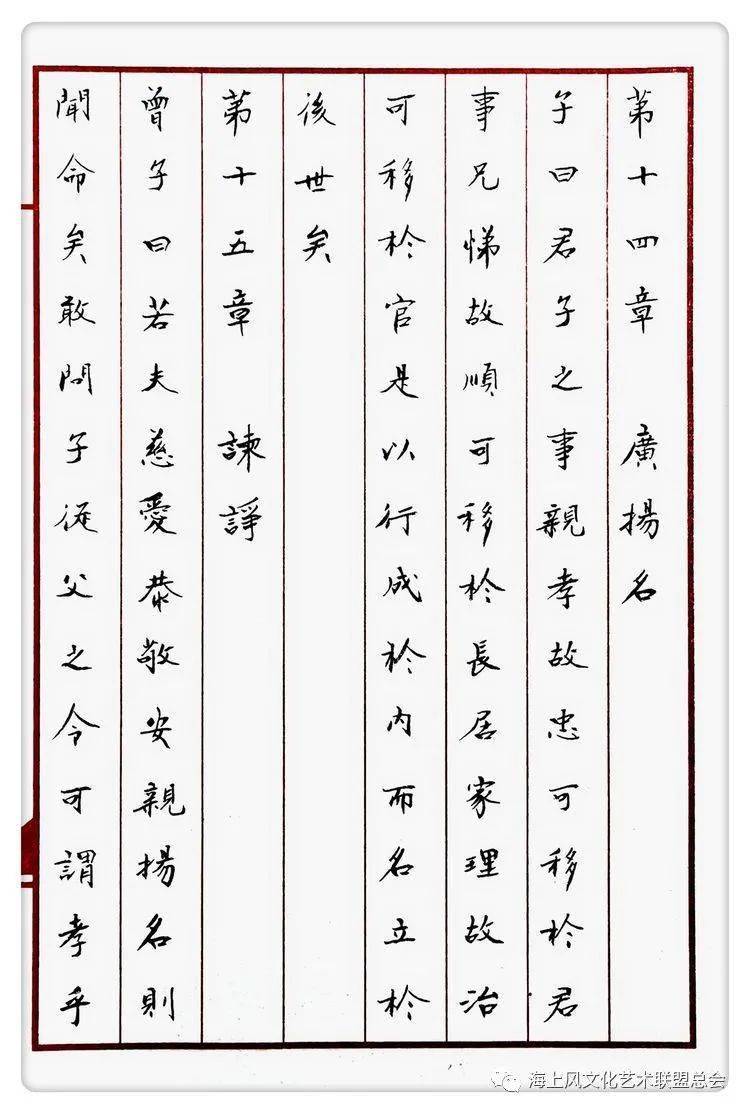 第十四章 廣揚名
子曰君子之事親孝故忠可移於君
事兄悌故順可移於長居家理故治
可移於官是以行成於内而名立於
後世矣
第十五章 諫諍
曾子曰若夫慈愛恭敬安親揚名則
聞命矣敢問子從父之令可謂孝乎
海上风文化艺术联盟总会